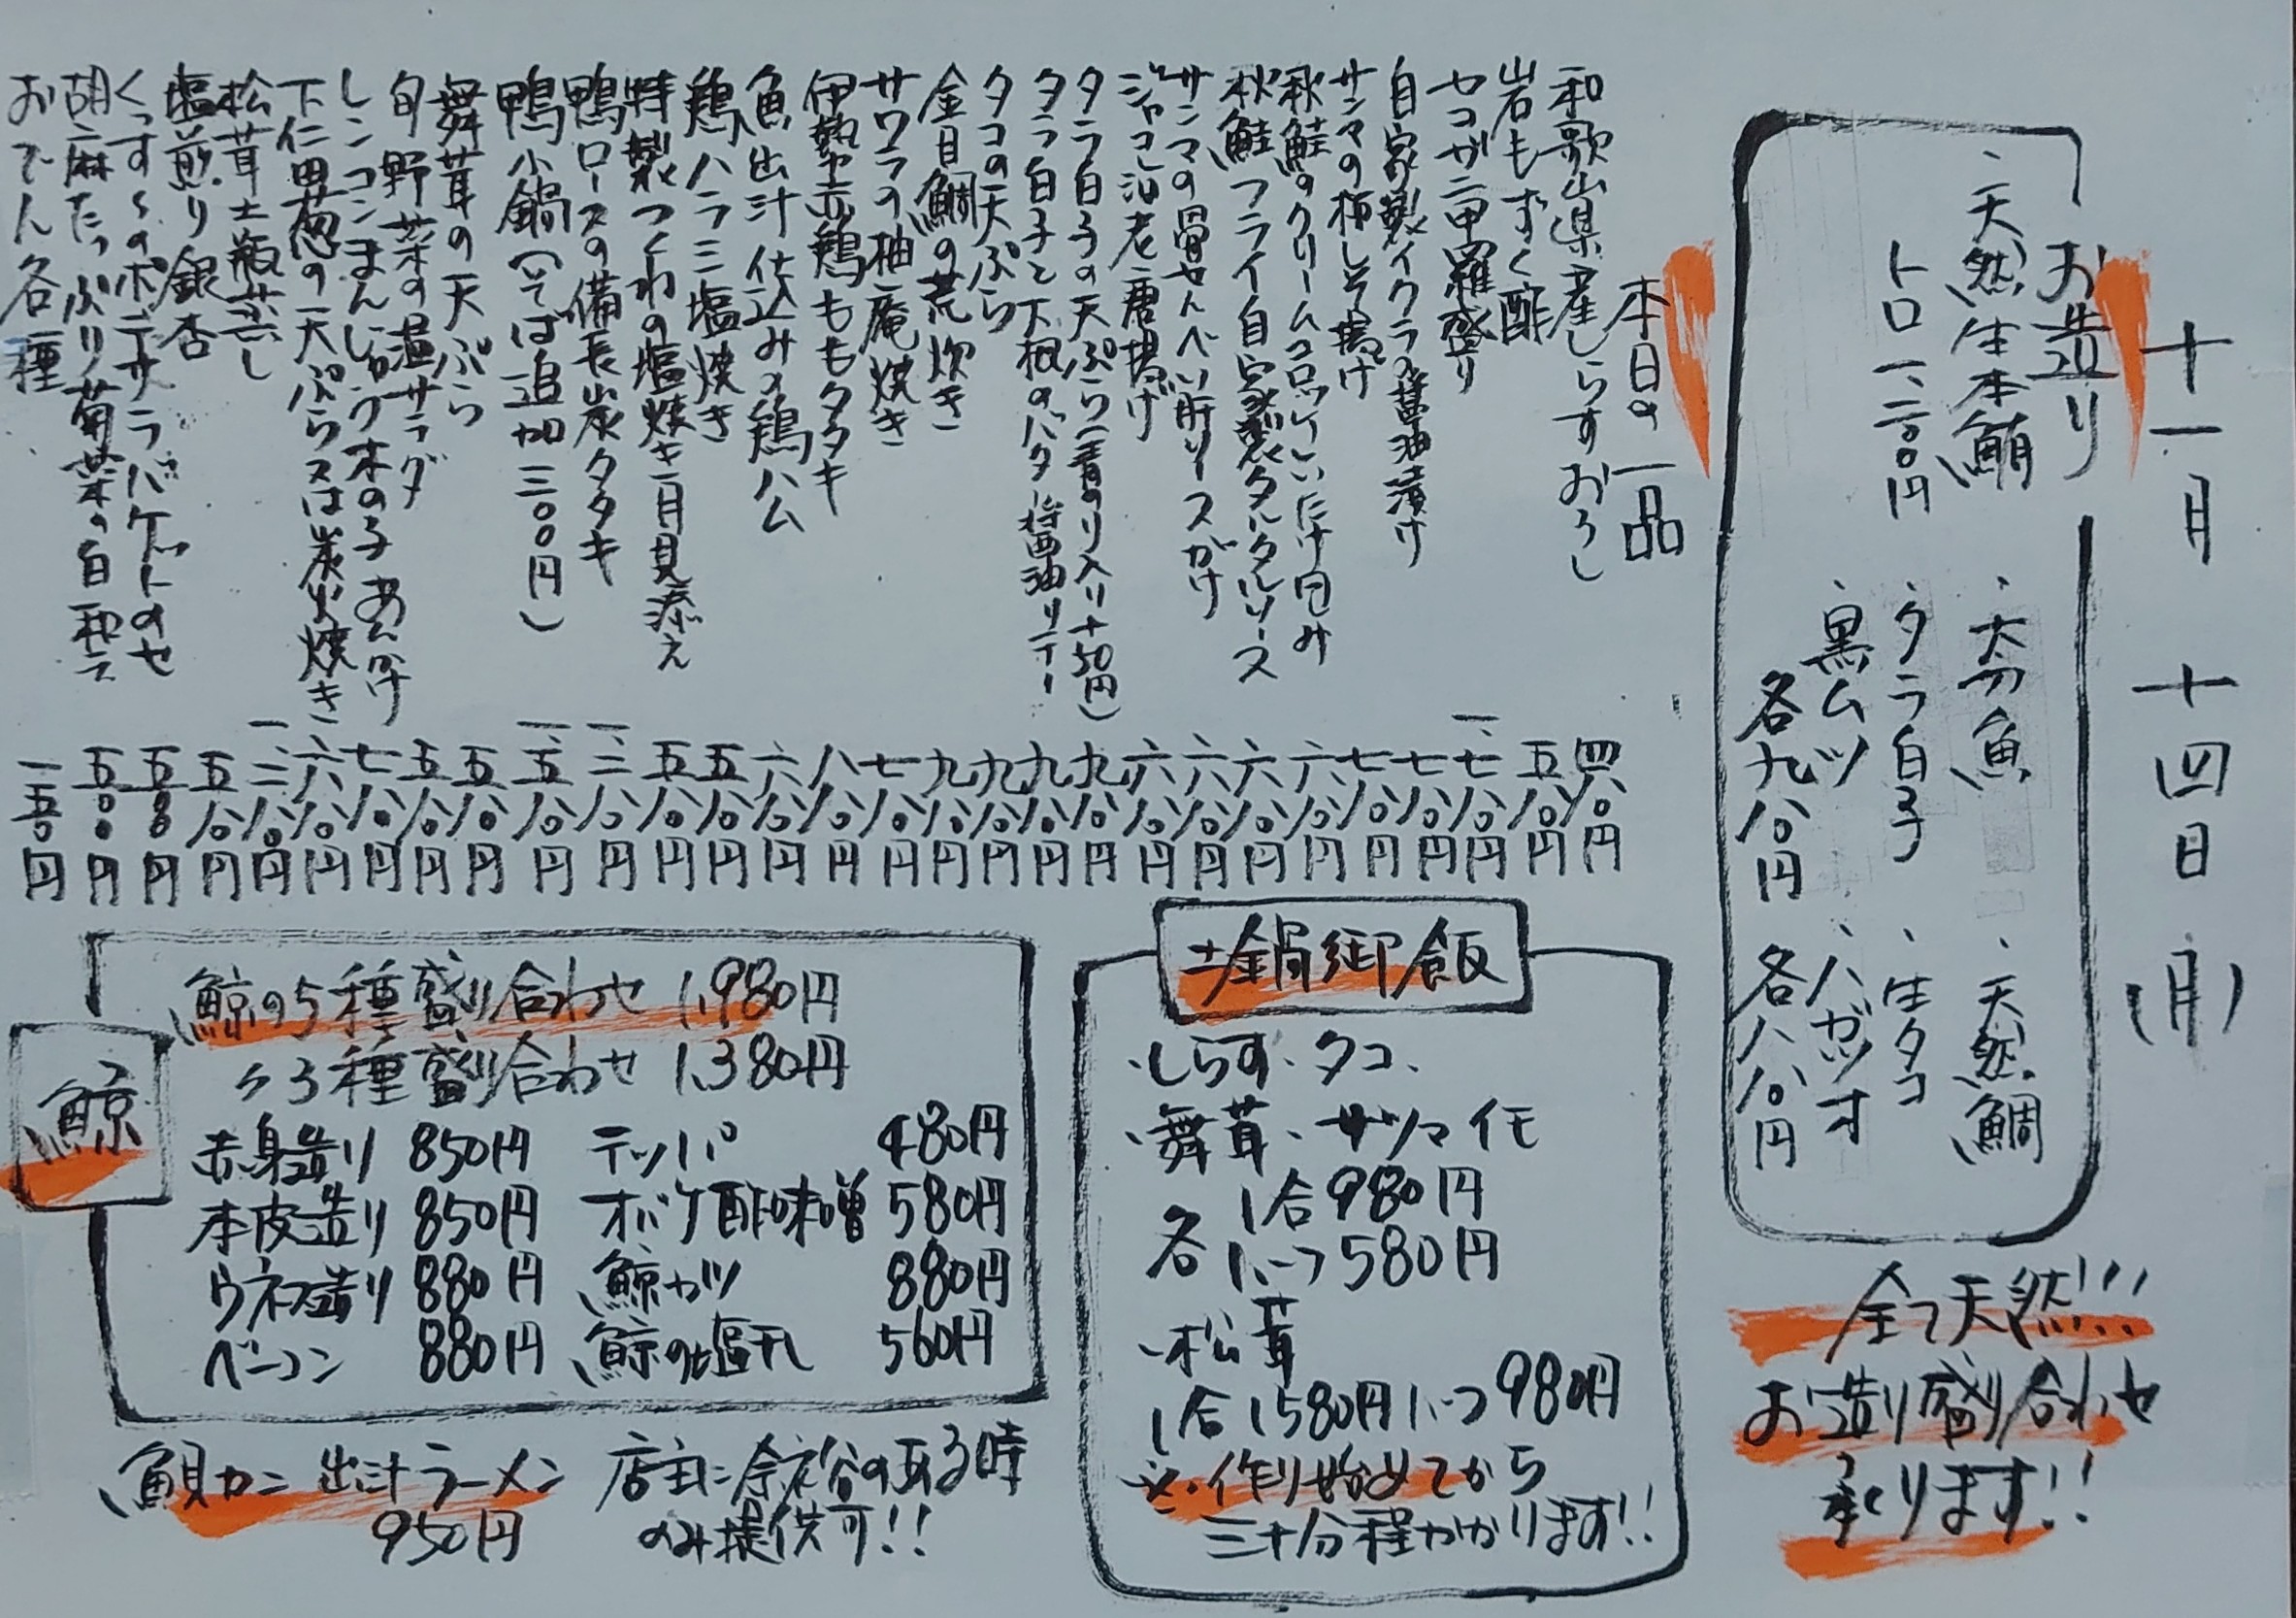 十一月 十四日(月)
お造り
・天然生本鮪
トロ 一、二八〇円
・太刀魚
・タラ白子
・黒ムツ
各九八〇円
・天然鯛
・生タコ
・ハガツオ
各八八〇円
全て天然!!!
お造り盛り合わせ
承ります!!
本日の一品
和歌山県産しらすおろし 四八〇円
岩もずく酢 五八〇円
セコガニ甲羅盛り 一、七八〇円
自家製イクラの醤油漬け 七八〇円
サンマの梅しそ揚げ 七八〇円
秋鮭のクリームコロッケしいたけ包み 六八〇円
秋鮭フライ自家製タルタルソース 六八〇円
サンマの骨せんべい肝ソースがけ 六八〇円
ジャコ海老唐揚げ 六八〇円
タラ白子の天ぷら(青のり入り+50円) 九八〇円
タラ白子と下根のバター醤油ソテー 九八〇円
タコの天ぷら 九八〇円
金目鯛の荒炊き 九八〇円
サワラの柚庵焼き 七八〇円
伊勢赤鶏ももタタキ 八八〇円
魚出汁仕込みの鶏ハム 六八〇円
鶏ハラミ塩焼き 五八〇円
特製つくねの塩焼き月見添え 五八〇円
鴨ロースの備長炭タタキ 一、二八〇円
鴨小鍋(そば追加三〇〇円) 一、五八〇円
舞茸の天ぷら 五八〇円
旬野菜の温サラダ 五八〇円
レンコンまんじゅう木の子あんかけ 七八〇円
下仁田葱の天ぷら又は炭火焼き 六八〇円
松茸土瓶蒸し 一、二八〇円
塩煎り銀杏 五八〇円
くっすんのポテサラバケットのせ 五五〇円
胡麻たっぷり菊菜の白和え 五〇〇円
おでん各種 一五〇円
土鍋御飯
・しらす・タコ、
・舞茸・サツマイモ
各 1合980円
1/2つ580円
・松茸
1合1580円 1/2つ980円
※・作り始めてから
三十分程かかります!!
鯨
鯨の5種盛り合わせ 1,980円
〃3種盛り合わせ 1,380円
赤身造り 850円 テッパ 480円
本皮造り 850円 オバケ酢味噌 580円
ウネス造り 880円 鯨カツ 880円
ベーコン 880円 鯨の塩干し 560円
魚貝カニ出汁ラーメン
950円
店主に余裕の有る時
のみ提供可!!